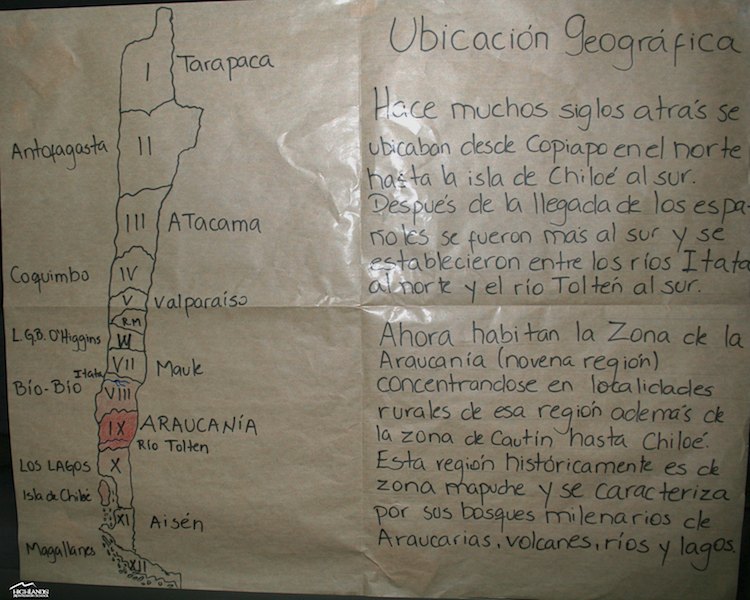 I
Tarapaca
Antofagasta
II
III
ATacama
Coquimbo
IV
V
Valparaíso
RM
L.G.B. O'Higgins
VI
VII
Maule
Itata
Bío-Bío
VIII
IX
ARAUCANÍA
Río Tolten
LOS LAGOS
X
Isla de Chiloé
XI
Aisén
Magallanes
XII
Ubicación geográfica
Hace muchos siglos atrás se
ubicaban desde Copiapo en el norte
hasta la isla de Chiloé al sur.
Después de la llegada de los espa-
ñoles se fueron mas al sur y se
establecieron entre los ríos Itata
al norte y el río Toltén al sur.
Ahora habitan la Zona de la
Araucanía (novena región)
concentrandose en localidades
rurales de esa región además de
la zona de Cautín hasta Chiloé.
Esta región históricamente es de
zona mapuche y se caracteriza
por sus bosques milenarios de
Araucarias, volcanes, ríos y lagos.
HIGHLANDS